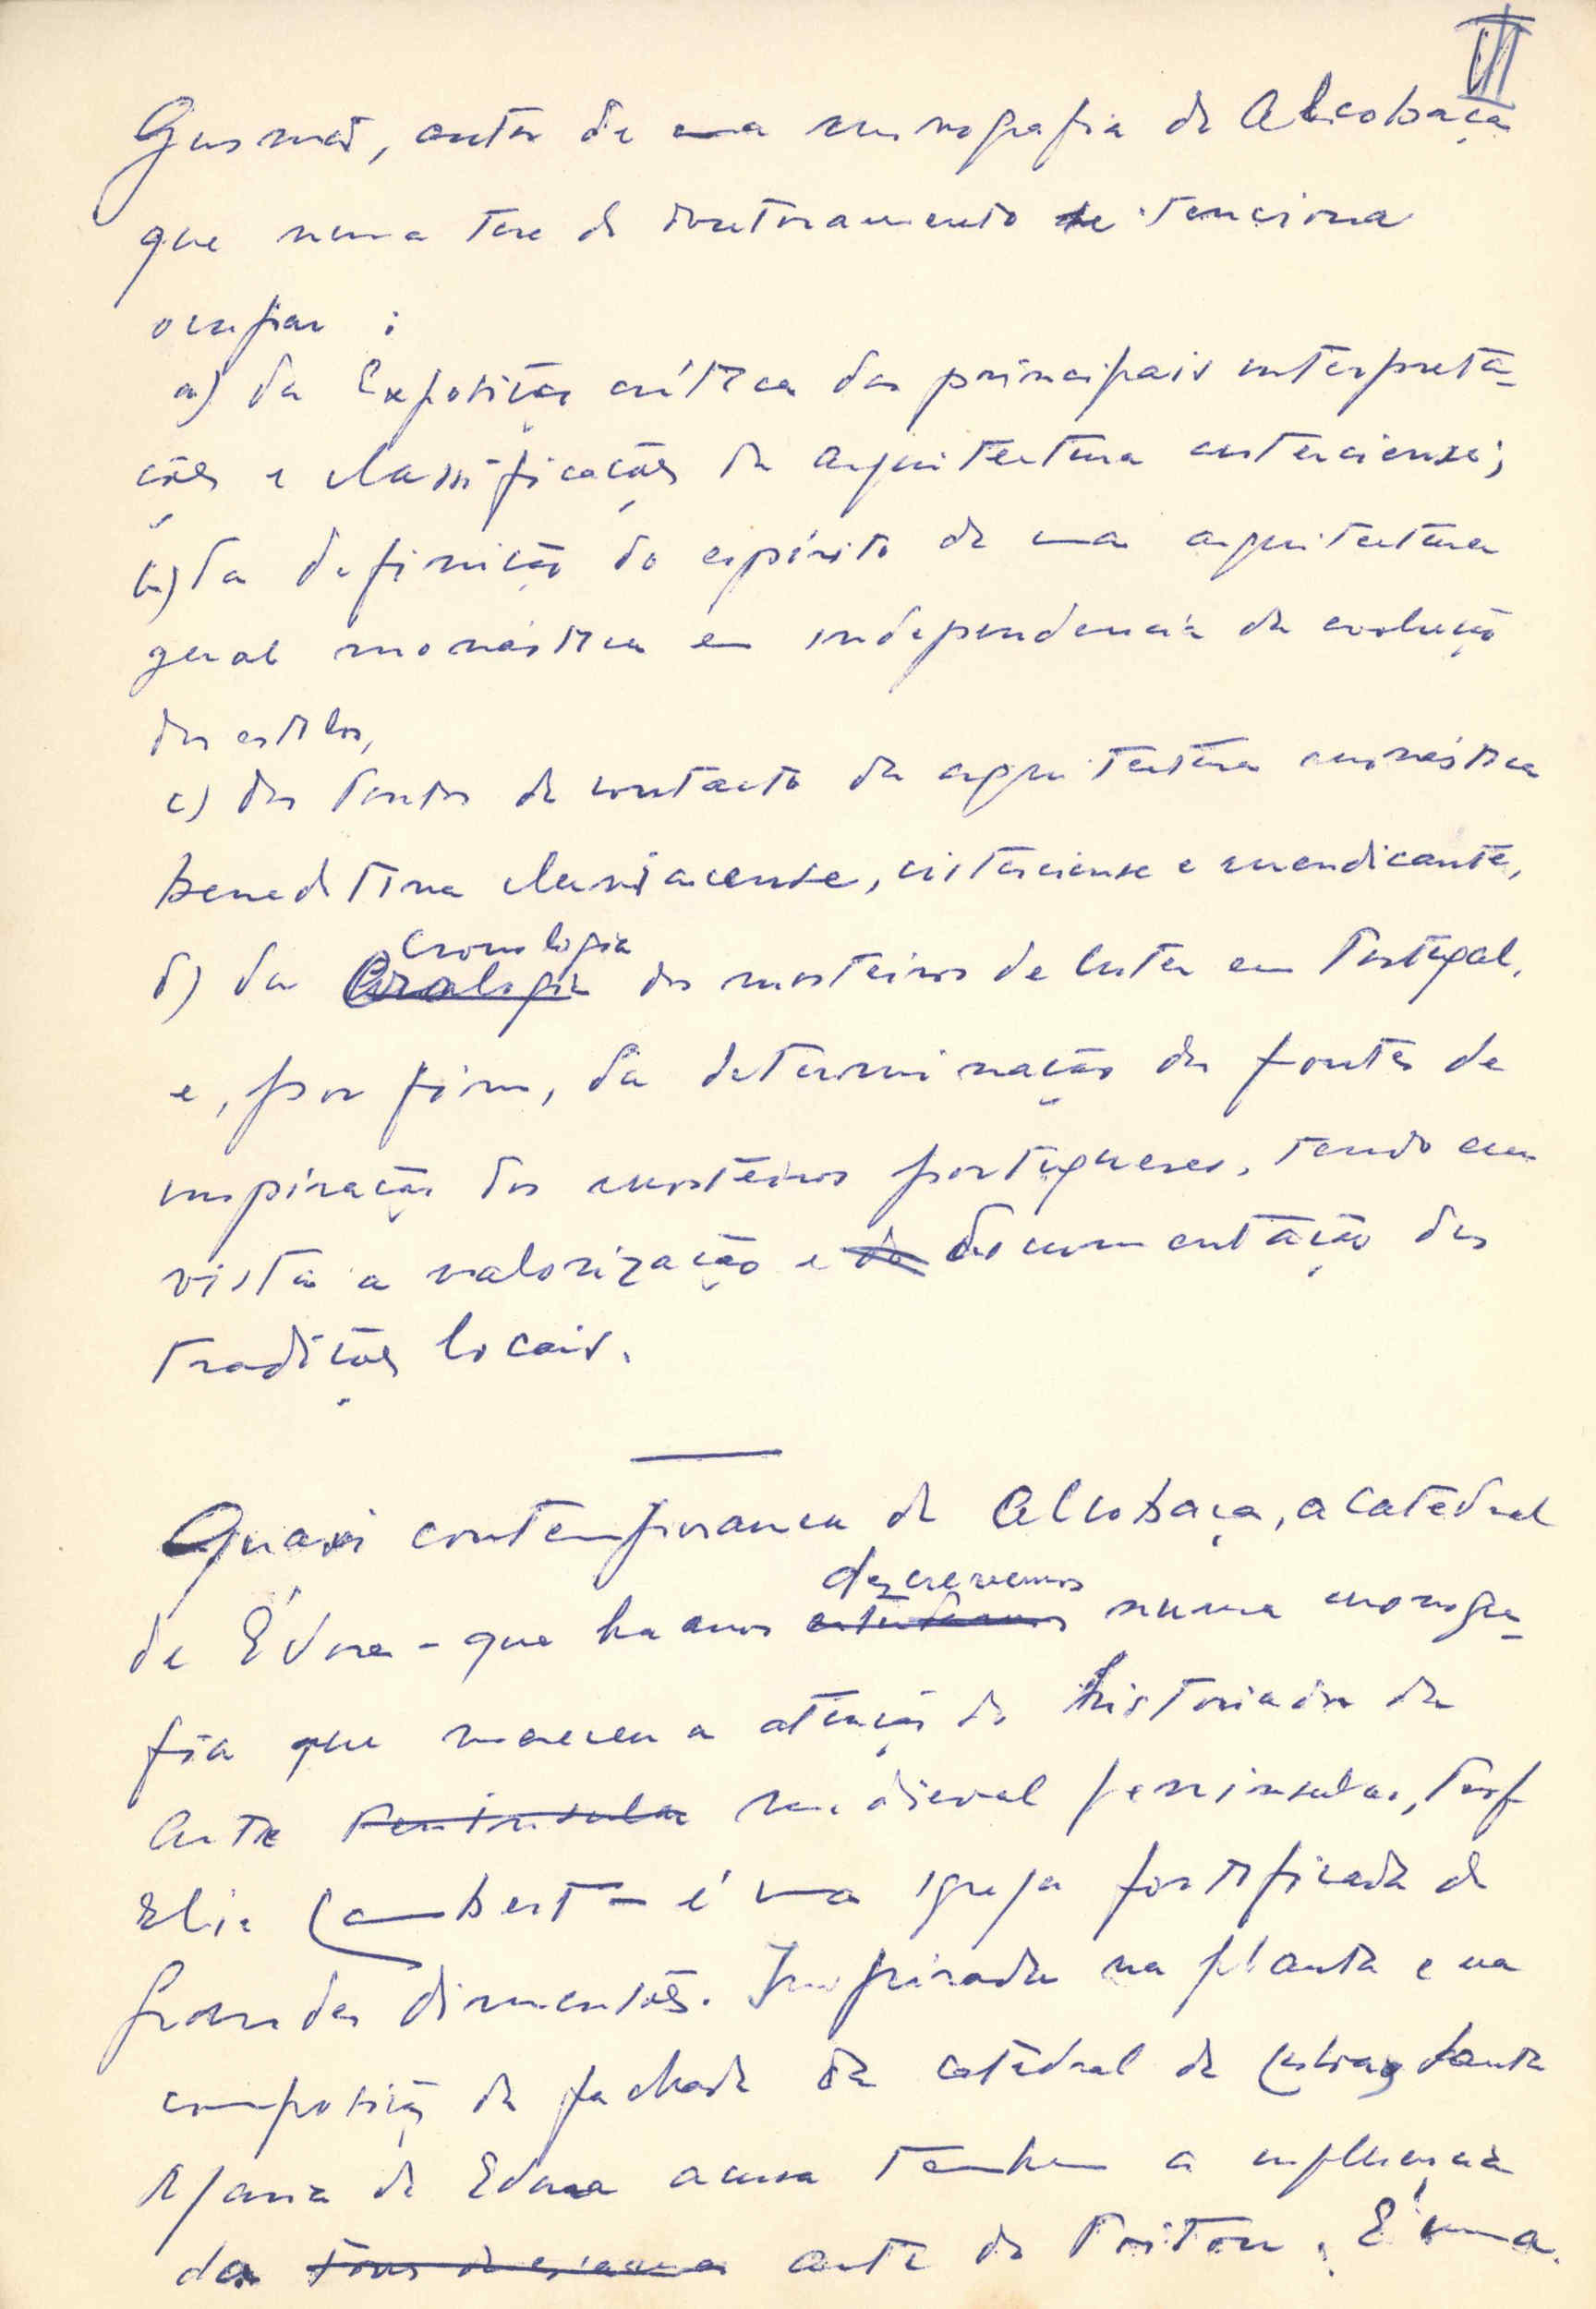 III
Gusmão, autor de uma monografia de Alcobaça
que numa tese de doutoramento se tenciona
ocupar :
a) da exposição crítica das principais interpreta-
ções e classificações da arquitectura cisterciense;
b) da definição do espírito de uma arquitectura
geral monástica em independencia da evolução
dos estilos,
c) dos pontos de contacto da arquitectura monástica
beneditina cluniacense, cisterciense e mendicante,
d) da cronologia dos mosteiros de Cister em Portugal,
e, por fim, da determinação das fontes de
inspiração dos mosteiros portugueses, tendo em
vista a valorização e documentação das
tradições locais.
Quasi contemporanea de Alcobaça, a catedral
de Évora - que ha anos descrevemos numa monogra-
fia que mereceu a atenção do historiador da
arte medieval peninsular, Prof
Elie Lambert - é uma igreja fortificada de
grandes dimensões. Inspirada na planta e na
composição da fachada da catedral de Lisboa, Santa
Maria de Evora acusa tambem a influência
da arte do Poitou. É uma